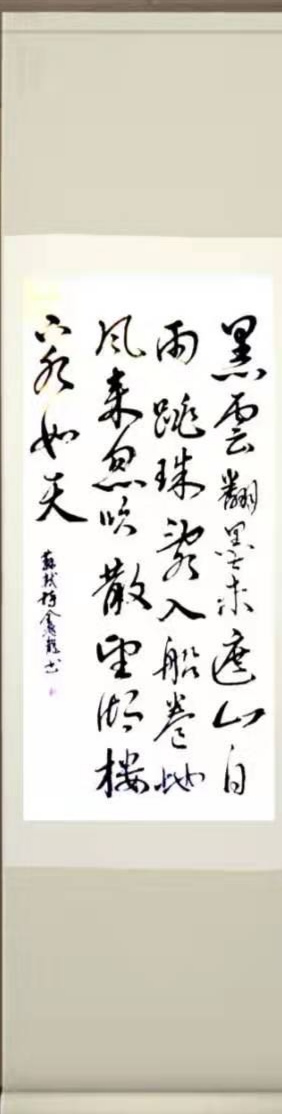 黑雲翻墨未遮山白
雨跳珠亂入船卷地
風來忽吹散望湖樓
下水如天
蘇軾詩金龍书